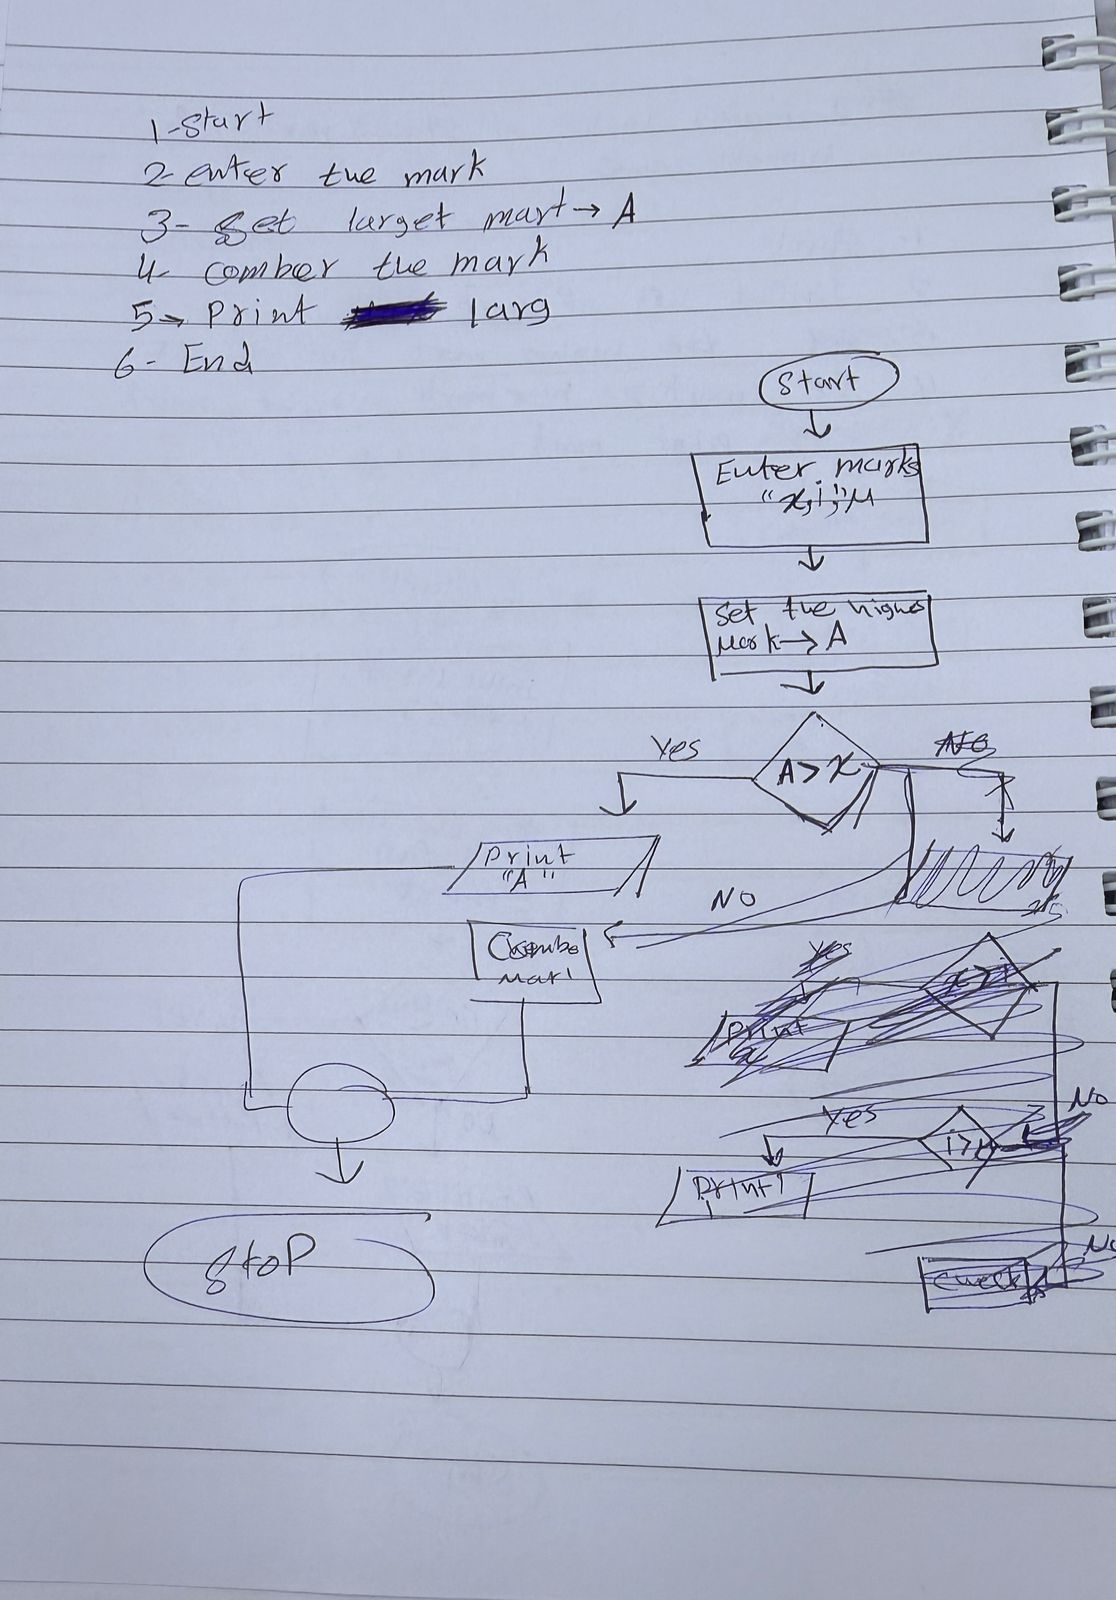 1-Start
2- enter the mark
3- set larget mart → A
4- comber the mark
5- Print larg
6- End
Start
Enter marks
"x,i,"M
Set the highes
Mark → A
A > x
Yes
No
Print
"A"
NO
Combe
mark
Yes
x > i
Print
x
Yes
No
Print i
No
check
Stop